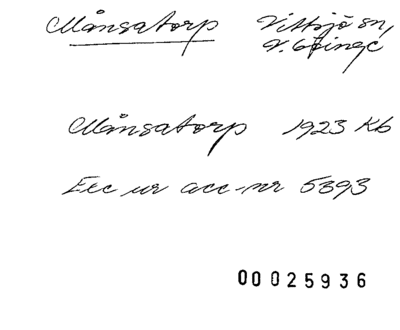 Månsatorp Vittsjö sn,
V. Göinge
Månsatorp 1923 Kb
Exc ur acc-nr 5393
00025936